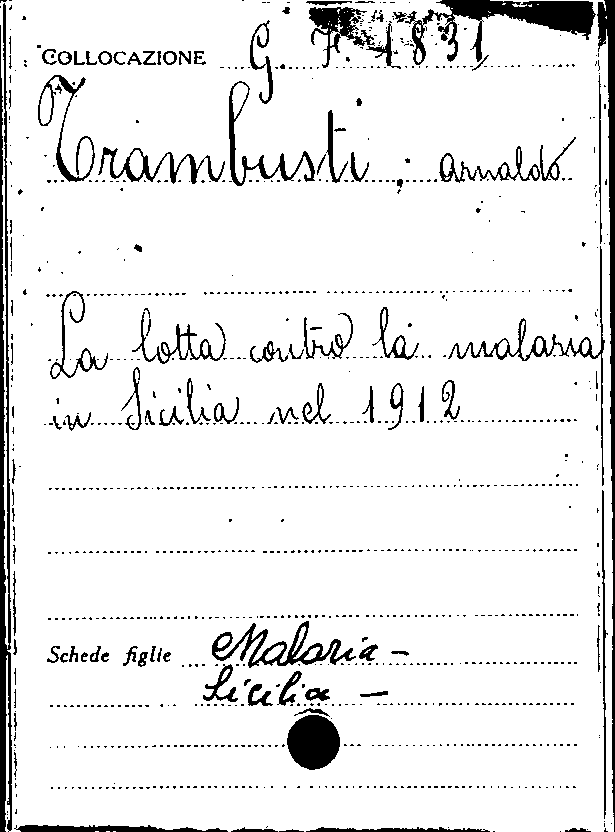 COLLOCAZIONE G. F. 1831
Trambusti, Arnaldo
La lotta contro la malaria
in Sicilia nel 1912
Schede figlie Malaria –
Sicilia –